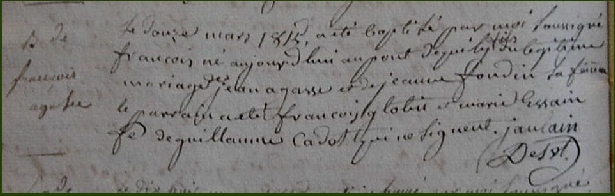 B de
françois
agasse
le douze mars 1815, a été baptisé par moi soussigné
françois né aujourd'hui au pont fils du légitime
mariage de jean agasse et de jeanne fondin sa femme
le parrain a été françois et marie Essain
fe de guillaume Cadot qui ne signent. jaulain
Desst.